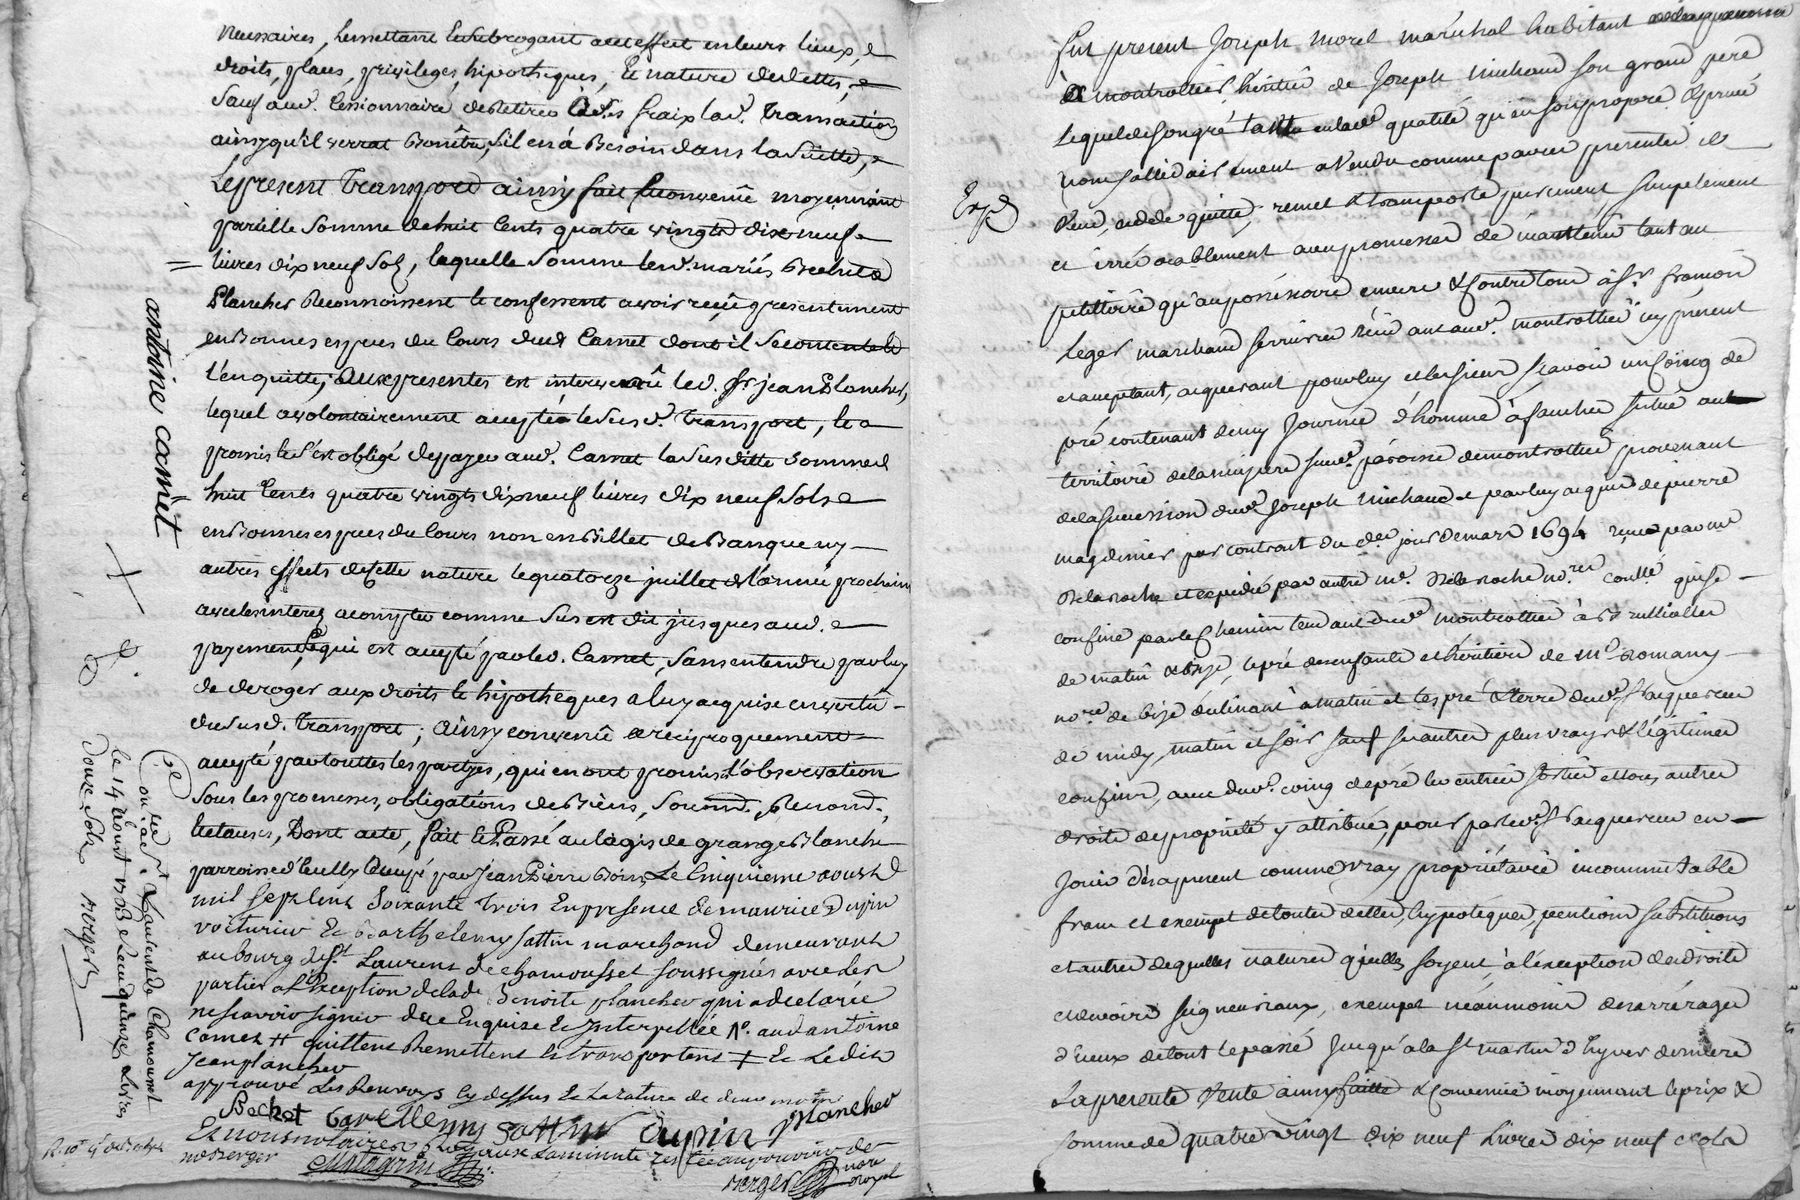 necessaires, les mettant et subrogeant a cet effect en leurs lieux, e
droits, places, privileges, hipotheques, et nature de dettes, e
sauf aud. Cessionnaire de retirer à ses fraix lad. Transaction
ainsy qu'il verrat bon être, s'il en à Besoin dans la suitte, e
Le present Transport ainsy fait et convenû moyennant
pareille somme de huit Cents quatre vingts dix neuf e
livres dix neuf Sols, laquelle somme lesd. mariés Bechet e
Plancher Reconnoissent et confessent avoir reçûe presentement
en Bonnes especes du Cours dud Camet dont il se contente et
l'en quitte; Aux presentes est intervenû led. Sr jean Plancher,
lequel a volontairement accepté le susd. Transport, et a
promis et s'est obligé de payer aud. Camet la susditte somme d
huit Cents quatre vingts dix neuf livres dix neuf Sols e
en Bonnes especes du Cours non en Billet de Banque ny
autres effects de cette nature le quatorze juillet de l'année prochaine
avec les interets a compter comme sus est dit jusques aud. e
payement, Ce qui est accepté par led. Camet, sans entendre par luy
de deroger aux droits et hipotheques a luy acquise en vertû
du susd. Transport; Ainsy convenû et reciproquement
accepté par touttes les partyes, qui en ont promis l'observation
sous les promesses, obligations de Biens, soumd., Renond.,
et clauses, Dont acte, fait et Passé au Logis de grange Blanche
parroisse d'Ecully Occupé par Jean Pierre Le Cinquieme aoust
mil sept cent soixante trois En presence de maurice Dupin
voiturier Et Barthelemy sattin marchand demeurant
au bourg de St Laurent de chamousset soussignés avec les
parties a L'Exception de lade Benoite plancher qui a declarée
ne sçavoir signer de ce Enquise Et Interpellée aud antoine
Camet # quittent Remettent et transportent ‡ Et Ledit
Jean plancher
approuvé Les Renvoys Cy dessus Et La rature de deux mots
Bechet Bartellemy Sattin Dupin plancher
Et nous notaires La minute restée au pouvoir de
me Berger
Matagrin Berger nore royal
antoine camet
Con.llé a St Laurent de Chamousset
le 14 aoust 1763 Recu quinze Livres
Douze Sols Berger
Fut present Joseph morel maréchal habitant
à montrottier, héritié de Joseph michaud son grand pere
Lequel de son gré tant en lade qualité qu'en son propre & privé
nom sollidairement a Vendu comme par ces presentes il
Vend, cedde, quitte, remet & transporte purement, simplement
Expd
et irrévocablement avec promesse de maintenir tant au
petittoire qu'au possessoire envers & contre tous à Sr françois
Leger marchand serrurier résidant aud. montrottier icy présent
et acceptant, acquerant pour luy et les siens sçavoir un Coing de
pré contenant demy Journée d'homme à faucher situé au
territoire de la minjere sud. paroisse de montrottier provenant
de la succession dud Joseph michaud et par luy acquis de pierre
magdinier par contract du der jour de mars 1694 reçu par me
Delaroche et expedié par autre me. Delaroche nore. coullé qui se
confine par le Chemin tendant dud montrottier à
de matin & bize, le pré des enfants et héritiers de me Romany
nore. de bize déclinant à matin et les pré & terre dud Sr acquereur
de midy, matin et soir sauf ses autres plus vrays & légitimes
confins, avec dud. coing de pré les entrées sorties et tous autres
droits de propriété y attribués, pour par led. Sr acquereur en
jouir dès à present comme vray propriétaire incommutable
franc et exempt de toutes dettes, hypotèques, pentions substitutions
et autres de quelles natures qu'elles soyent, à l'exception des droits
et devoirs seigneuriaux, exempt néanmoins des arrérages
d'iceux de tout le passé jusqu'à la St martin d'hyver derniere
La presente Vente ainsy faitte & Convenüe moyennant le prix &
somme de quatre vingt dix neuf Livres dix neuf sols